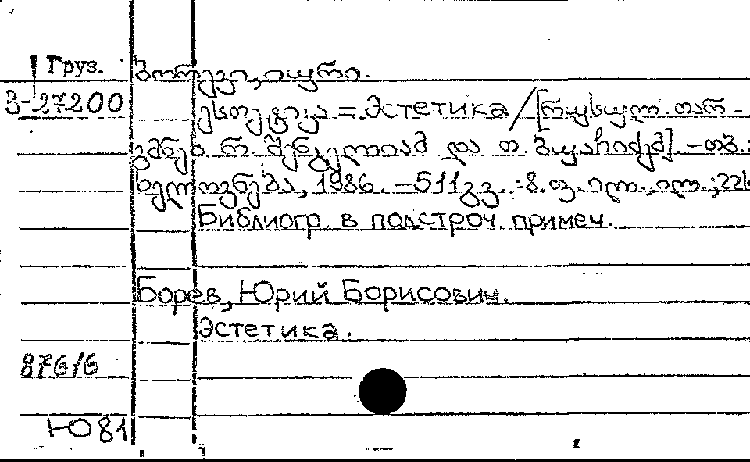 Груз. ბორევი, იური.
3-27200 ესთეტიკა = Эстетика / [რუსულ. თარ-
გმნეს რ. შენგელიამ და თ. ბუაჩიძემ]. - თბ.:
ხელოვნება, 1986. - 511 გვ.: 8. ფ. ილ., ილ.; 22
Библиогр. в подстроч. примеч.
Борев, Юрий Борисович.
Эстетика.
876/6
Ю 81